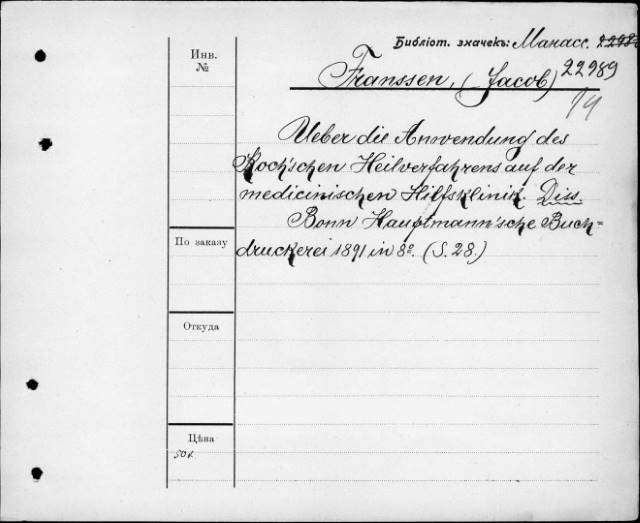 Библіот. значекъ: Манасс.
22989
Инв.
№
Franssen, (Jacob)
14
Ueber die Anwendung des
Koch'schen Heilverfahrens auf der
medicinischen Hilfsklinik. Diss.
Bonn Hauptmann'sche Buch-
druckerei 1891 in 8º. (S. 28.)
По заказу
Откуда
Цѣна
50 к.